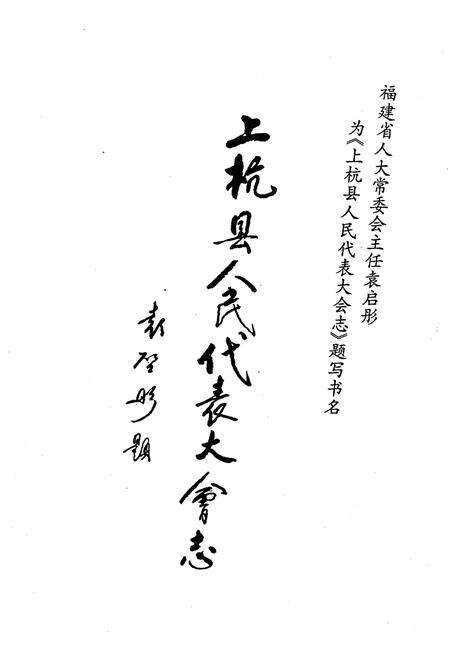 福建省人大常委会主任袁启彤
为《上杭县人民代表大会志》题写书名
上杭县人民代表大會志
袁啓彤题